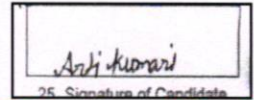 Arti Kumari
25. Signature of Candidate